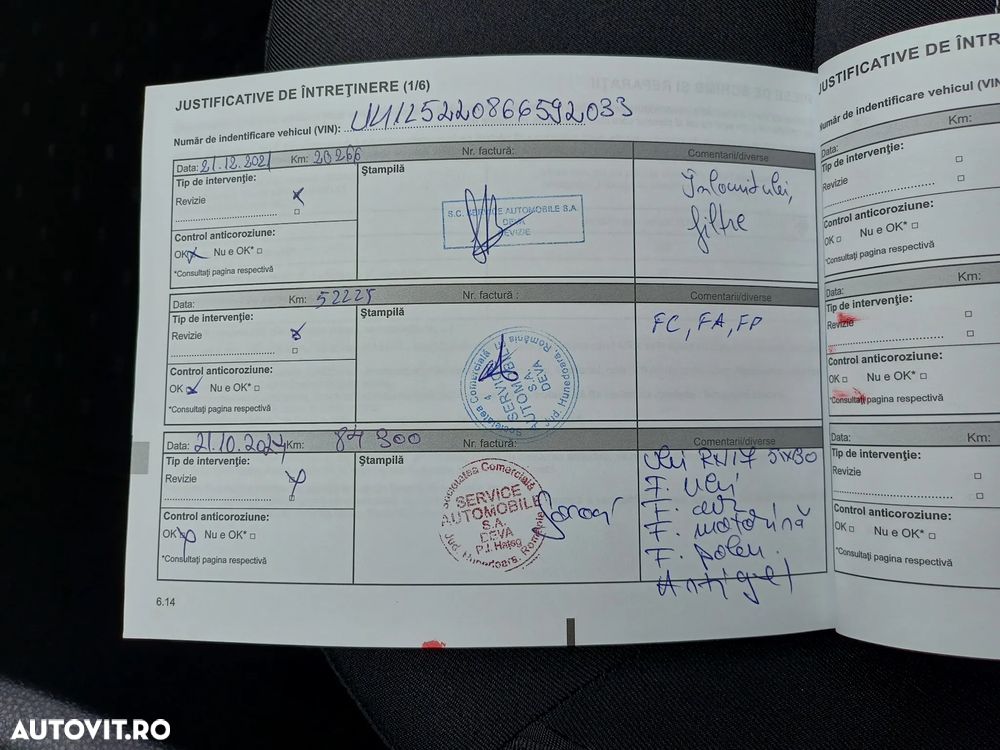 JUSTIFICATIVE DE ÎNTREŢINERE (1/6)
Număr de indentificare vehicul (VIN):
Data: 21.12.2021 Km: 20266 Nr. factură: Comentarii/diverse
Tip de intervenţie:
Revizie
Control anticoroziune:
OK Nu e OK*
*Consultaţi pagina respectivă
Ştampilă
S.C. SERVICE AUTOMOBILE S.A.
DEVA
REVIZIE
filtre
Data: Km: 52225 Nr. factură : Comentarii/diverse
Tip de intervenţie:
Revizie
Control anticoroziune:
OK Nu e OK*
*Consultaţi pagina respectivă
Ştampilă
Societatea Comercială
SERVICE
AUTOMOBILE
S.A.
DEVA
Jud. Hunedoara, România
FC, FA, FP
Data: 21.10.2024 Km: 84 300 Nr. factură: Comentarii/diverse
Tip de intervenţie:
Revizie
Control anticoroziune:
OK Nu e OK*
*Consultaţi pagina respectivă
Ştampilă
Societatea Comercială
SERVICE
AUTOMOBILE
S.A.
DEVA
P.l. Haţeg
Jud. Hunedoara, România
Ulei RN17 5W30
F. ulei
F. aer
F. motorină
F. polen
Antigel
6.14
JUSTIFICATIVE DE ÎNTR
Număr de indentificare vehicul (VIN)
Data: Km:
Tip de intervenţie:
Revizie
Control anticoroziune:
OK Nu e OK*
*Consultaţi pagina respectivă
Data: Km:
Tip de intervenţie:
Revizie
Control anticoroziune:
OK Nu e OK*
*Consultaţi pagina respectivă
Data: Km:
Tip de intervenţie:
Revizie
Control anticoroziune:
OK Nu e OK*
*Consultaţi pagina respectivă
AUTOVIT.RO